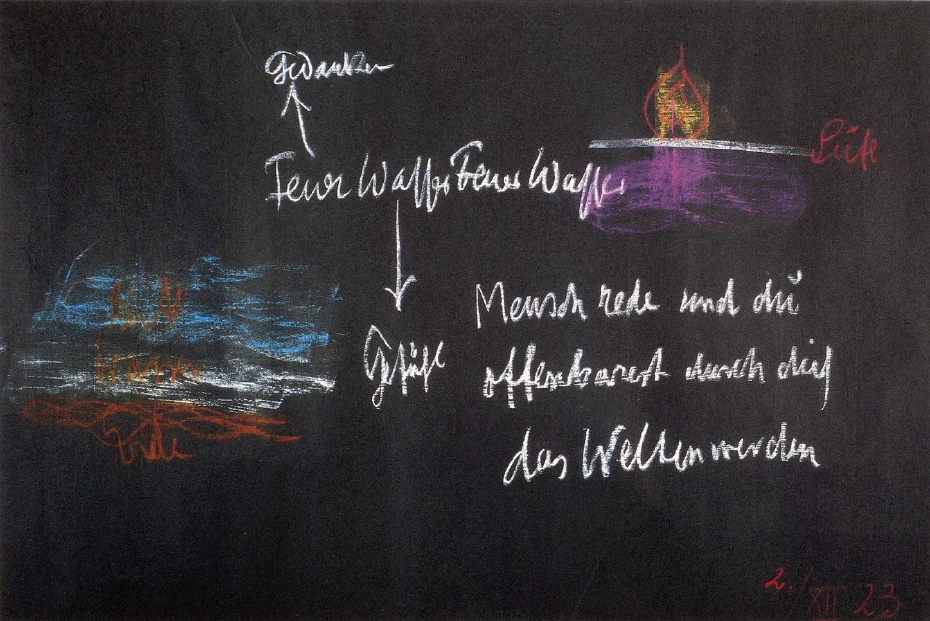 Gedanken
Feuer Wasser Feuer Wasser
Luft
Luft
Erde
Gefühl
Mensch rede und du
offenbarest durch dich
das Weltenwerden
2./XII 23